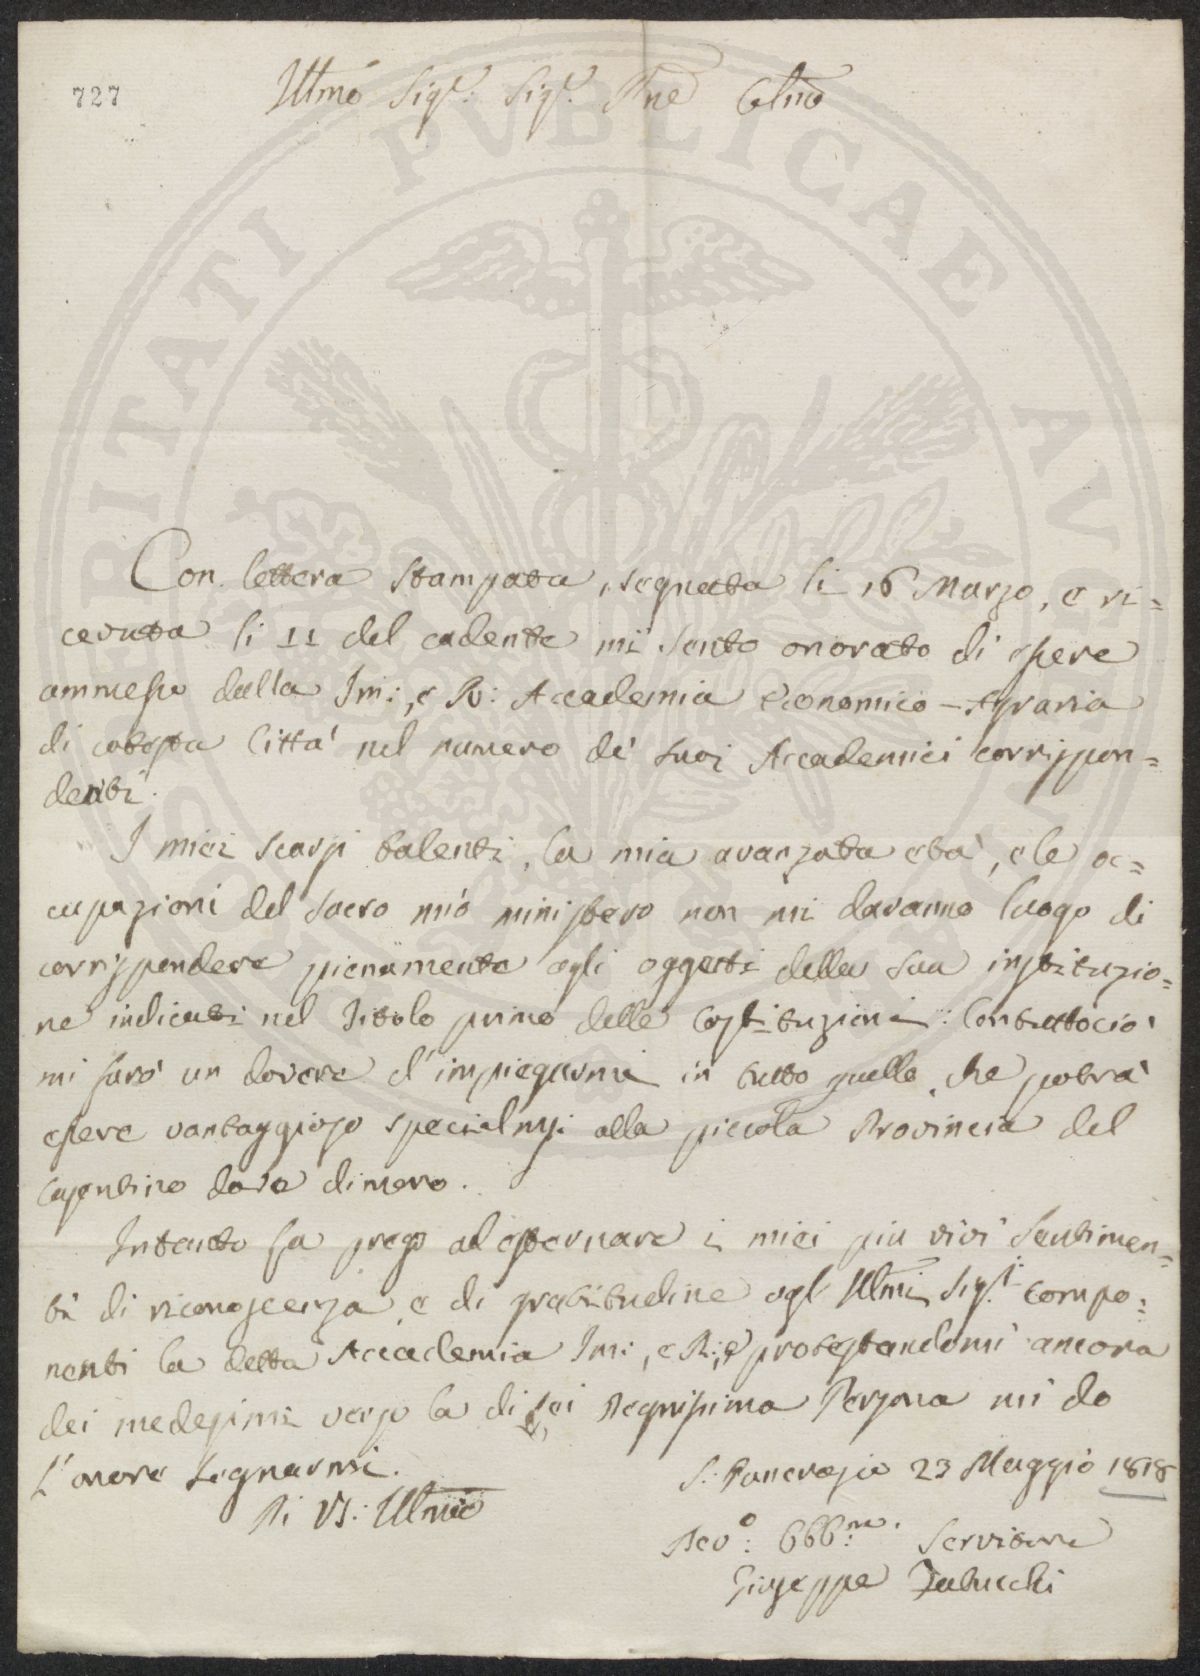 727
Illmo Sigr. Sigr. Pne Colmo
Con lettera stampata, segnata li 16 Marzo, e ri=
cevuta li 11 del cadente mi sento onorato di essere
ammesso dalla Im:, e R: Accademia Economico-Agraria
di cotesta Città nel numero de' suoi Accademici corrispon=
denti.
I miei scarsi talenti, la mia avanzata età, e le oc=
cupazioni del sacro mio ministero non mi daranno luogo di
corrispondere pienamente agli oggetti della sua instituzio=
ne indicati nel Titolo primo delle Costituzioni. Contuttociò
mi farò un dovere d'impiegarmi in tutto quello, che potrà
essere vantaggioso specialmte. alla piccola Provincia del
Casentino dove dimoro.
Intanto La prego ad esternare i miei più vivi sentimen=
ti di riconoscenza, e di gratitudine agl' Illmi Sigri. compo=
nenti la detta Accademia Im:, e R:, e protestandomi ancora
dei medesimi verso la di Lei Degnissima Persona mi do
L'onore segnarmi.
Di VS: Illma
S: Pancrazio 23 Maggio 1818
Devo: Obbmo. Servitore
Giuseppe Tabucchi